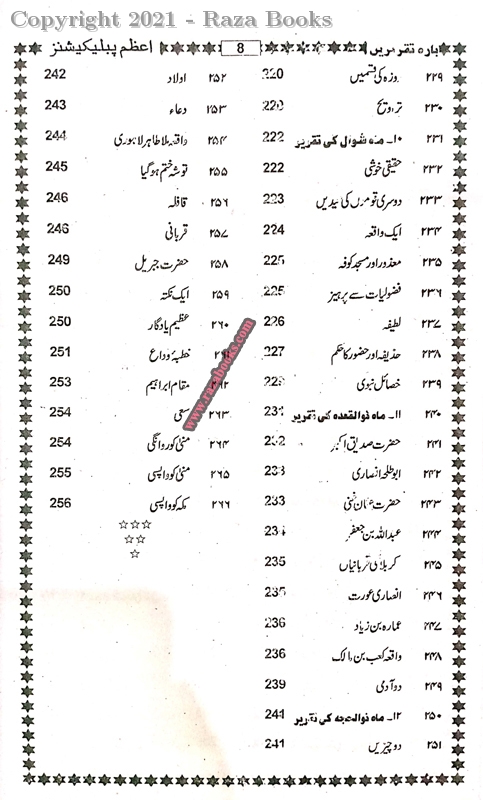 Copyright 2021 - Raza Books
بارہ تقریریں 8 اعظم پبلیکیشنز
۲۲۹ روزہ کی قسمیں 220
۲۳۰ تراویح 220
۲۳۱ ۱۰۔ ماہ شوال کی تقریر 222
۲۳۲ حقیقی خوشی 222
۲۳۳ دوسری قوموں کی عیدیں 223
۲۳۴ ایک واقعہ 224
۲۳۵ معذور اور مسجد کوفہ 225
۲۳۶ فضولیات سے پرہیز 225
۲۳۷ لطیفہ 226
۲۳۸ حذیفہ اور حضور کا حکم 227
۲۳۹ خصائل نبوی 228
۲۴۰ ۱۱۔ ماہ ذوالقعدہ کی تقریر 231
۲۴۱ حضرت صدیق اکبر 232
۲۴۲ ابو طلحہ انصاری 233
۲۴۳ حضرت عثمان غنی 233
۲۴۴ عبداللہ بن جعفر 234
۲۴۵ کربلا کی قربانیاں 235
۲۴۶ انصاری عورت 235
۲۴۷ عمارہ بن زیاد 236
۲۴۸ واقعہ کعب بن مالک 236
۲۴۹ دو آدمی 239
۲۵۰ ۱۲۔ ماہ ذوالحجہ کی تقریر 241
۲۵۱ دو چیزیں 241
۲۵۲ اولاد 242
۲۵۳ دعاء 243
۲۵۴ واقعہ ملا طاہر لاہوری 244
۲۵۵ توشہ ختم ہو گیا 245
۲۵۶ قافلہ 246
۲۵۷ قربانی 246
۲۵۸ حضرت جبریل 249
۲۵۹ ایک نکتہ 250
۲۶۰ عظیم یادگار 250
۲۶۱ خطبۂ وداع 251
۲۶۲ مقام ابراہیم 253
۲۶۳ سعی 254
۲۶۴ منیٰ کو روانگی 254
۲۶۵ منیٰ کو واپسی 255
۲۶۶ مکہ کو واپسی 256
www.razabooks.com